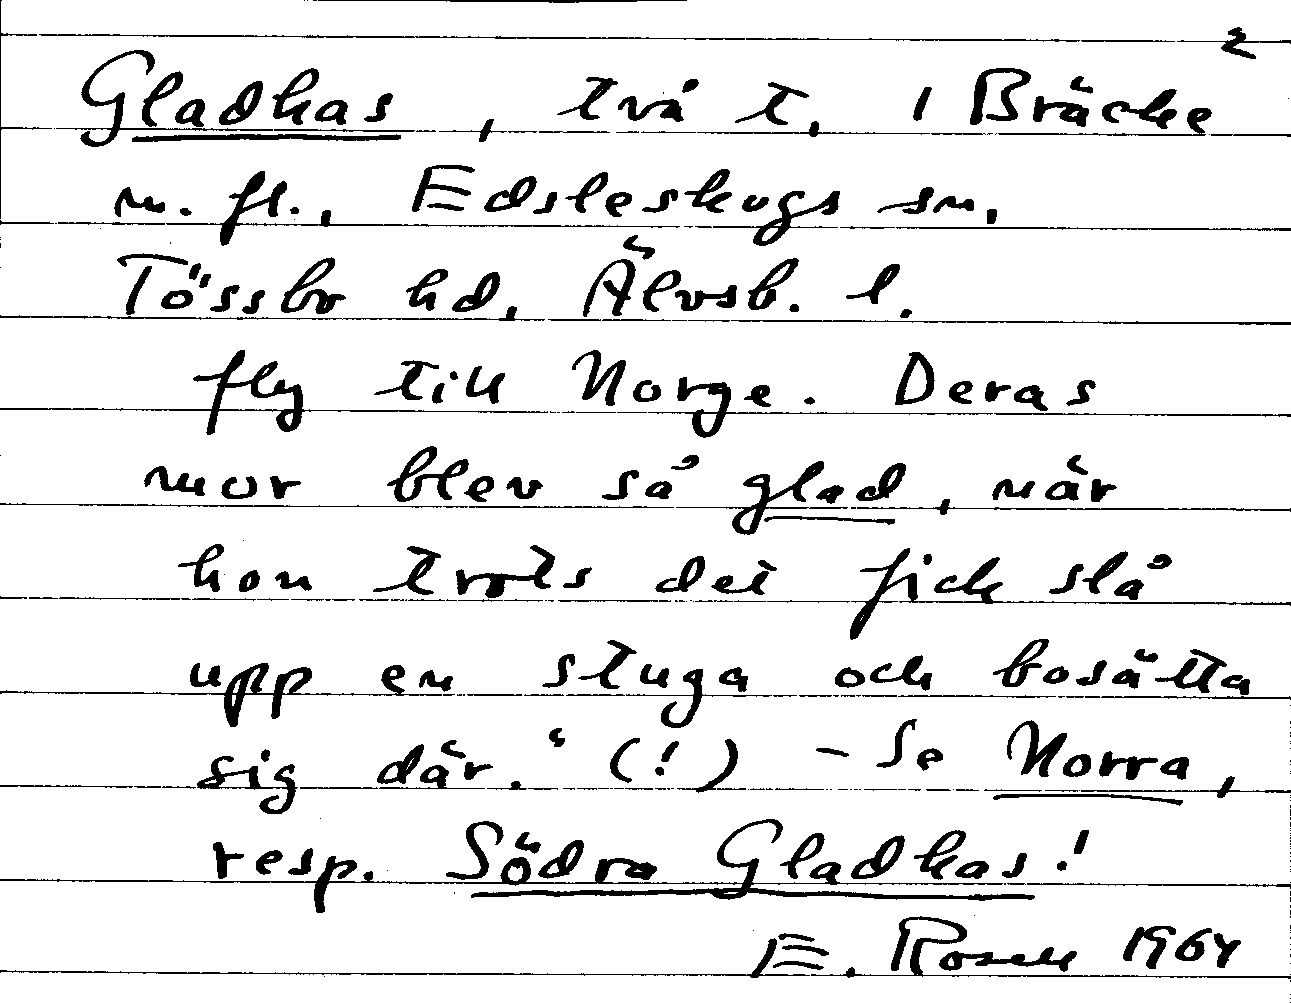 2
Gladhas, två t. i Bräcke
m. fl., Edsleskogs sn,
Tössbo hd, Älvsb. l.
fly till Norge. Deras
mor blev så glad, när
hon trots det fick slå
upp en stuga och bosätta
sig där." (!) - Se Norra,
resp. Södra Gladhas!
E. Rosell 1964